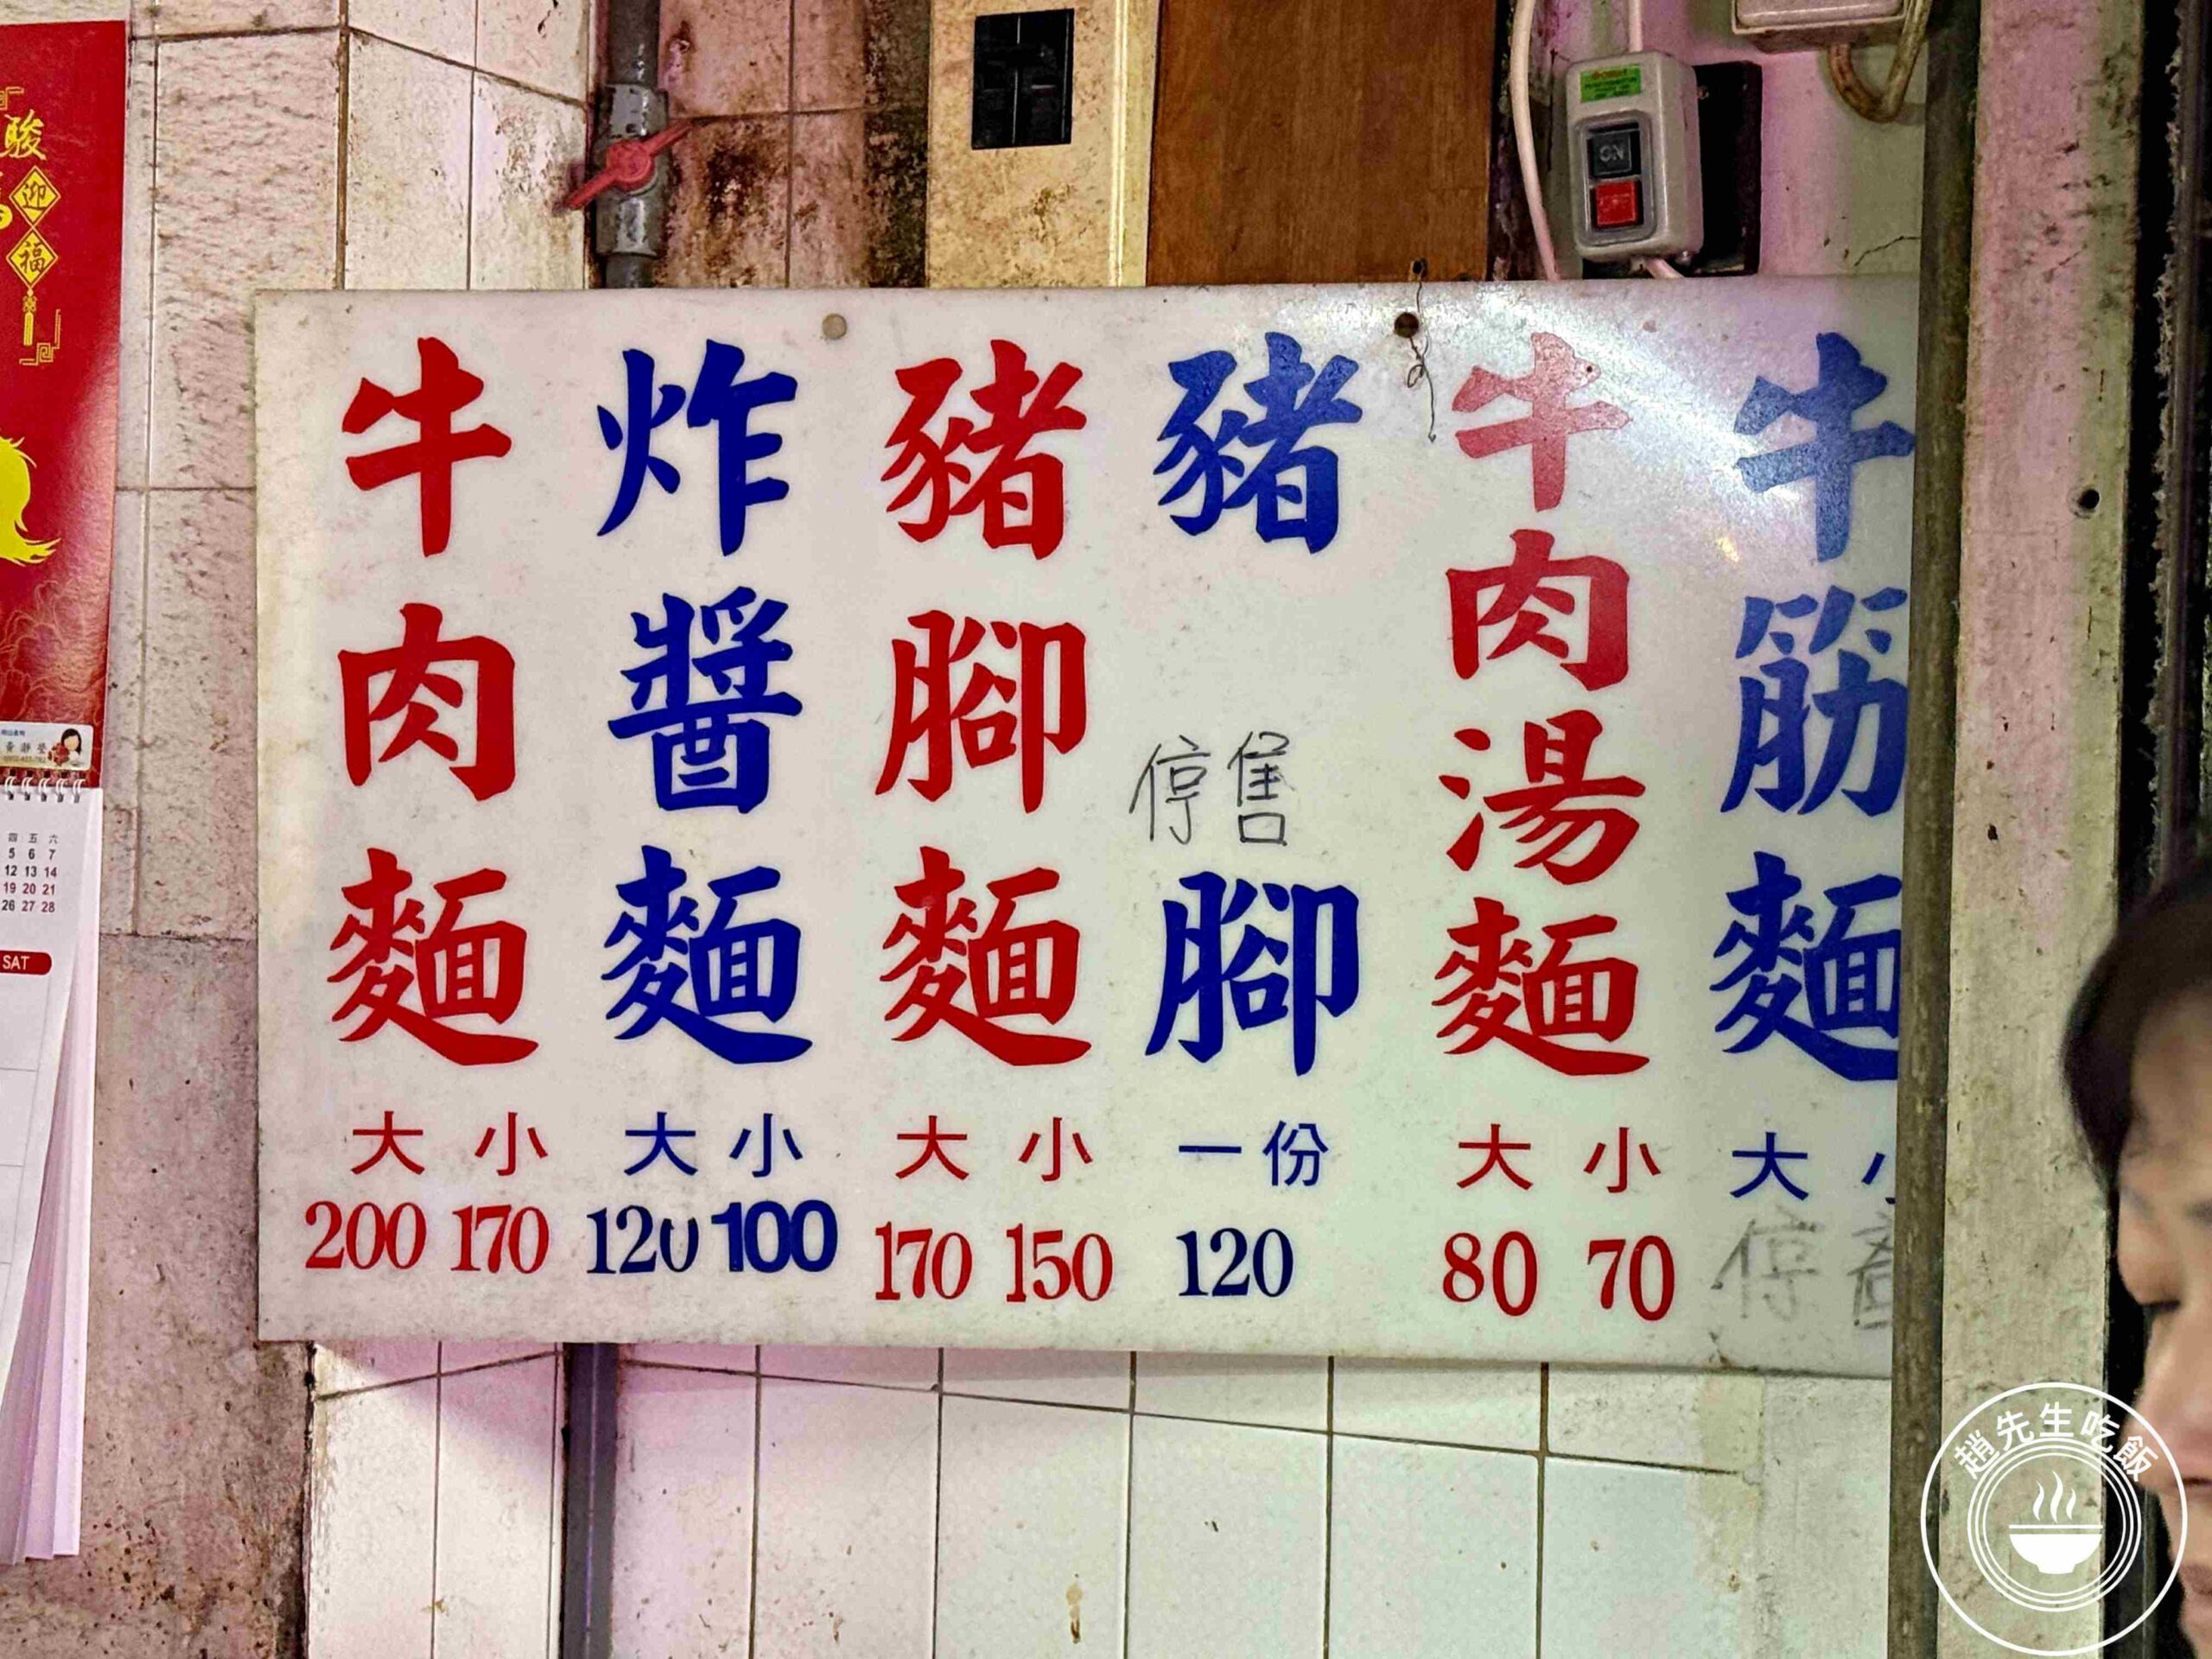 駿
迎
福
四 五 六
5 6 7
12 13 14
19 20 21
26 27 28
SAT
ON
牛肉麵
大 小
200 170
炸醬麵
大 小
120 100
豬腳麵
大 小
170 150
豬腳
停售
一份
120
牛肉湯麵
大 小
80 70
牛筋麵
大 小
停
趙先生吃飯